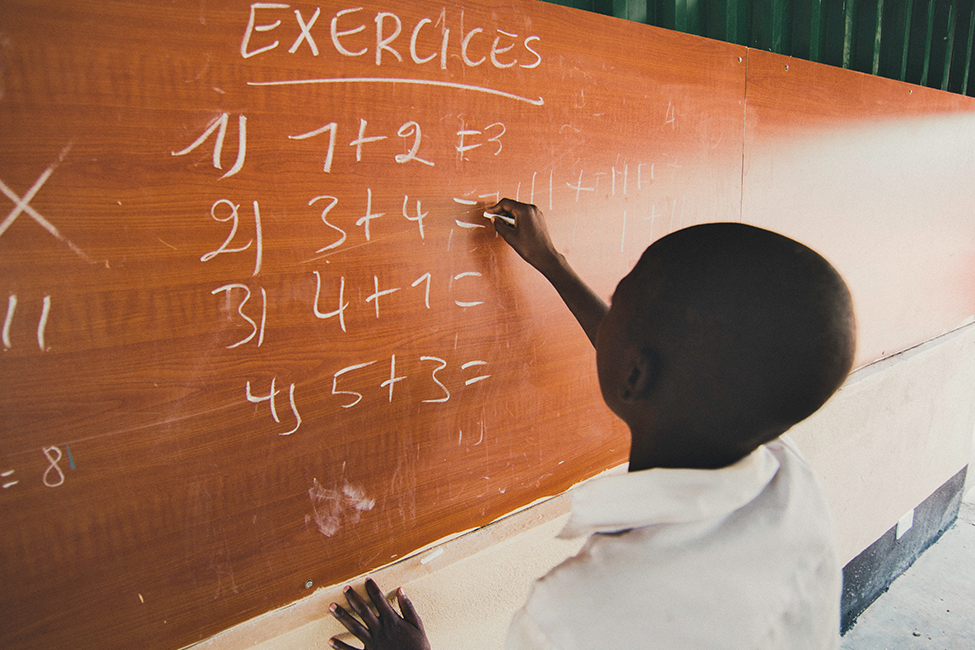 EXERCICES
1) 1+2=3
2) 3+4=
3) 4+1=
4) 5+3=
= 8